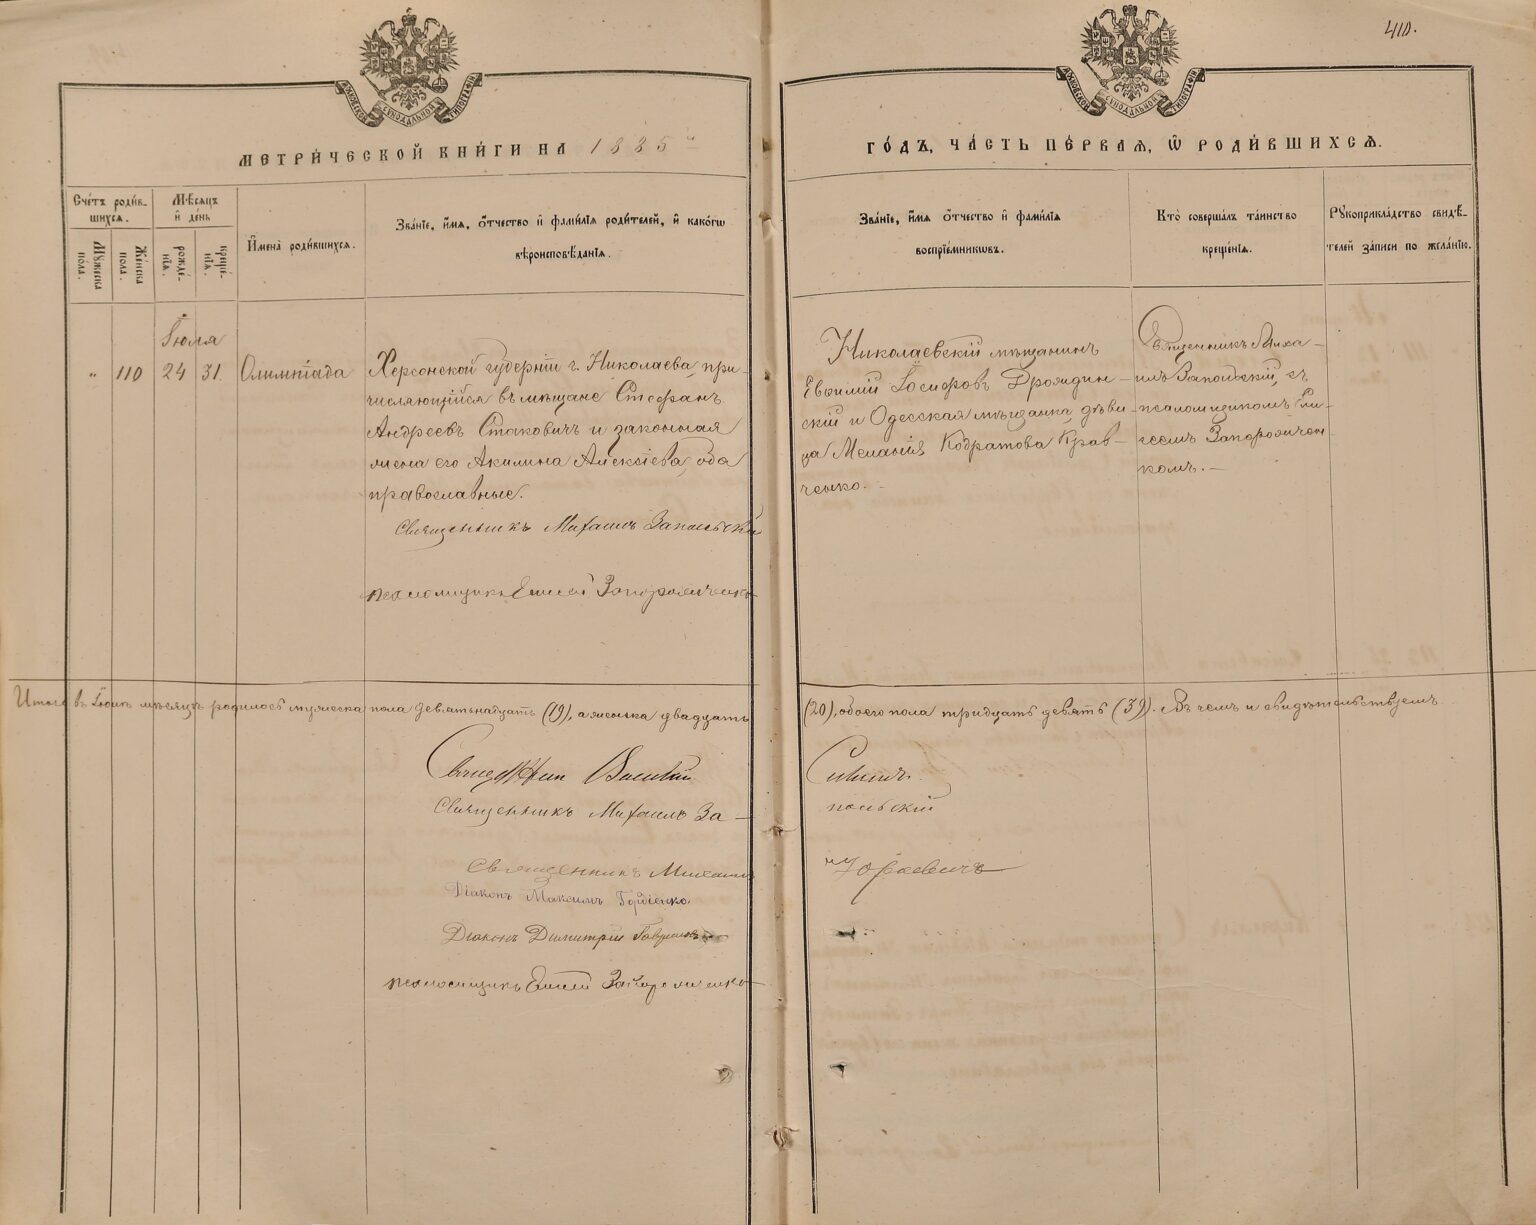 410.
МОСКОВСКОЙ СѴНОДАЛЬНОЙ ТИПОГРАФІИ
МОСКОВСКОЙ СѴНОДАЛЬНОЙ ТИПОГРАФІИ
МЕТРИ́ЧЕСКОЙ КНИ́ГИ НА 1885й
ГО́ДЪ, ЧА́СТЬ ПЕ́РВАѦ, Ѡ҆ РОДИ́ВШИХСѦ.
Сче́тъ роди́в-
шихсѧ.
Мꙋжеска по́ла.
Же́нска пола.
Мѣсѧцъ
и҆ де́нь
рожде́-
нїѧ.
креще́-
нїѧ.
И҆мена̀ роди́вшихсѧ.
Зва́нїе, и҆́мѧ, о҆́тчество и҆ фами́лїѧ роди́телей, и҆ како́гѡ
вѣроисповѣ́данїѧ.
Зва́нїе, и҆́мѧ о҆́тчество и҆ фами́лїѧ
воспрїе́мникѡвъ.
Кто̀ соверша́лъ та́инство
креще́нїѧ.
Рꙋкоприкла́дство свидѣ́-
телей за́писи по жела́нїю.
Іюля
" 110 24 31. Олимпіада
Херсонской губерніи г. Николаева, при-
числяющійся въ мѣщане Стефанъ
Андреевъ Стакович и законная
жена его Акилина Алексіева, оба
православные.
Священникъ Михаилъ Запольскій
псаломщикъ Елисей Запорожченко
Николаевскій мѣщанинъ
Евѳимій Іосифовъ Дроздин-
скій и Одесская мѣщанка, дѣви-
ца Меланія Кодратова Крав-
ченко.-
Священникъ Миха-
илъ Запольскій, съ
псаломщикомъ Ели-
сеемъ Запорожчен
комъ.-
Итого въ Іюлѣ мѣсяцѣ родилось мужеска пола девятьнадцать (19), а женска двадцать
(20), обоего пола тридцать девять (39). Въ чемъ и свидѣтельствуемъ
Священник Василій
Священникъ Михаилъ За-
польскій
Священникъ Михаилъ
Юркевичъ
Діаконъ Максимъ Гордіенко
Діаконъ Димитрій
псаломщикъ Елисей Запорожченко